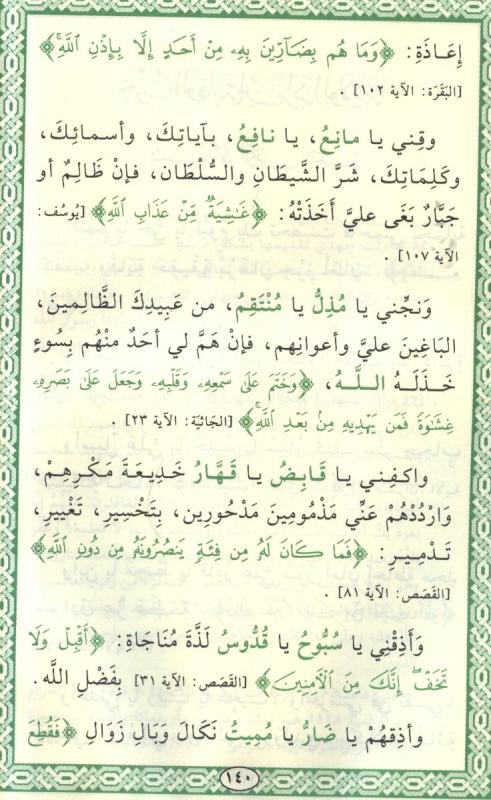 إِعَـاذَةِ: ﴿وَمَا هُم بِضَآرِّينَ بِهِۦ مِنْ أَحَدٍ إِلَّا بِإِذْنِ اللَّهِ﴾
[البَقَرَة: الآية ١٠٢] .
وقِني يا مانِعُ، يا نافِعُ، بـآيـاتِكَ، وأسمـائِكَ،
وكَلِمَاتِكَ، شَرَّ الشَّيطَانِ والسُّلْطَان، فإنْ ظَالِمٌ أو
جَبَّارٌ بَغَى عليَّ أَخَذَتْهُ: ﴿غَـٰشِيَةٌ مِّنْ عَذَابِ اللَّهِ﴾ [يُوسُف:
الآية ١٠٧] .
وَنجِّني يا مُذِلُّ يا مُنْتَقِمُ، من عَبِيدِكَ الظَّالِمينَ،
البَاغِينَ عليَّ وأعوانِهم، فإنْ هَمَّ لي أحَدٌ منْهُم بِسوءٍ
خَـذَلَـهُ الـلَّـهُ، ﴿وَخَتَمَ عَلَىٰ سَمْعِهِۦ وَقَلْبِهِۦ وَجَعَلَ عَلَىٰ بَصَرِهِۦ
غِشَـٰوَةً فَمَن يَهْدِيهِ مِنۢ بَعْدِ اللَّهِ﴾ [الجَاثيَة: الآية ٢٣] .
واكـفِـني يـا قَـابِضُ يـا قَـهَّـارُ خَـدِيـعَـةَ مَـكْـرِهِـمْ،
وَارْدُدْهُمْ عَنِّي مَذْمُومِينَ مَدْحُورِين، بِتَخْسِيرِ، تَغْيِيرِ،
تَـدْمِـيـرِ: ﴿فَمَا كَانَ لَهُۥ مِن فِئَةٍ يَنصُرُونَهُۥ مِن دُونِ اللَّهِ﴾
[القَصَص: الآية ٨١] .
وَأَذِقْنِي يا سُبُّوحُ يا قُدُّوسُ لَذَّةَ مُنَاجَاةِ: ﴿أَقْبِلْ وَلَا
تَخَفْ إِنَّكَ مِنَ الْآمِنِينَ﴾ [القَصَص: الآية ٣١] بِفَضْلِ اللَّه .
وأذِقهُمْ يا ضَارُّ يا مُمِيتُ نَكَالَ وَبَالِ زَوَالِ ﴿فَقُطِعَ
١٤٠